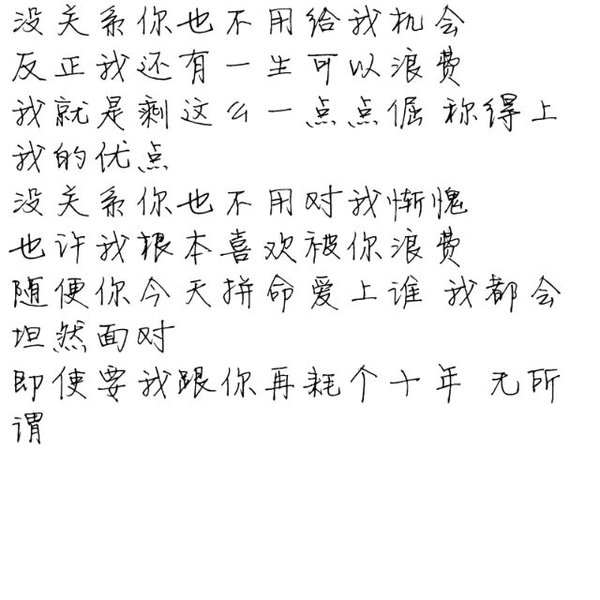 没关系你也不用给我机会
反正我还有一生可以浪费
我就是剩这么一点点倔 称得上
我的优点
没关系你也不用对我惭愧
也许我根本喜欢被你浪费
随便你今天拼命爱上谁 我都会
坦然面对
即使要我跟你再耗个十年 无所
谓